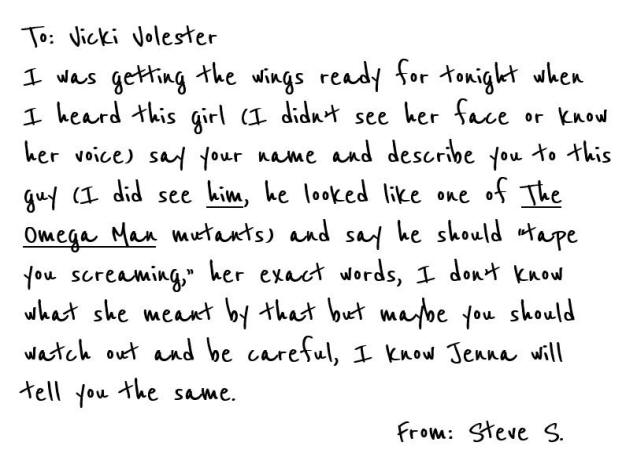 To: Vicki Volester
I was getting the wings ready for tonight when
I heard this girl (I didn't see her face or know
her voice) say your name and describe you to this
guy (I did see him, he looked like one of The
Omega Man mutants) and say he should "tape
you screaming," her exact words, I don't know
what she meant by that but maybe you should
watch out and be careful, I know Jenna will
tell you the same.
From: Steve S.